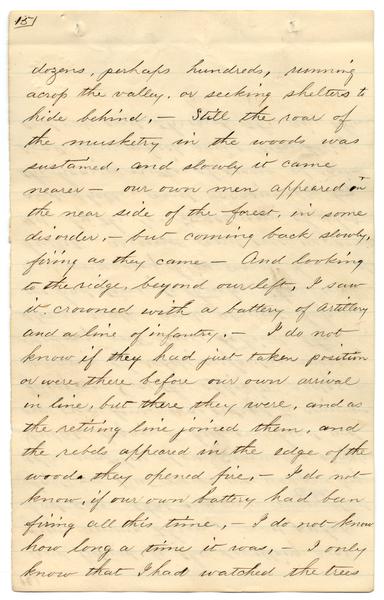 151
dozens, perhaps hundreds, running
across the valley, or seeking shelters to
hide behind, — Still the roar of
the musketry in the woods was
sustained, and slowly it came
nearer — our own men appeared in
the near side of the forest, in some
disorder, — but coming back slowly,
firing as they came — And looking
to the ridge, beyond our left, I saw
it crowned with a battery of artillery
and a line of infantry, — I do not
know if they had just taken position
or were there before our own arrival
in line, but there they were, and as
the retiring line joined them, and
the rebels appeared in the edge of the
woods they opened fire, — I do not
know, if our own battery had been
firing all this time, — I do not know
how long a time it was, — I only
know that I had watched the trees